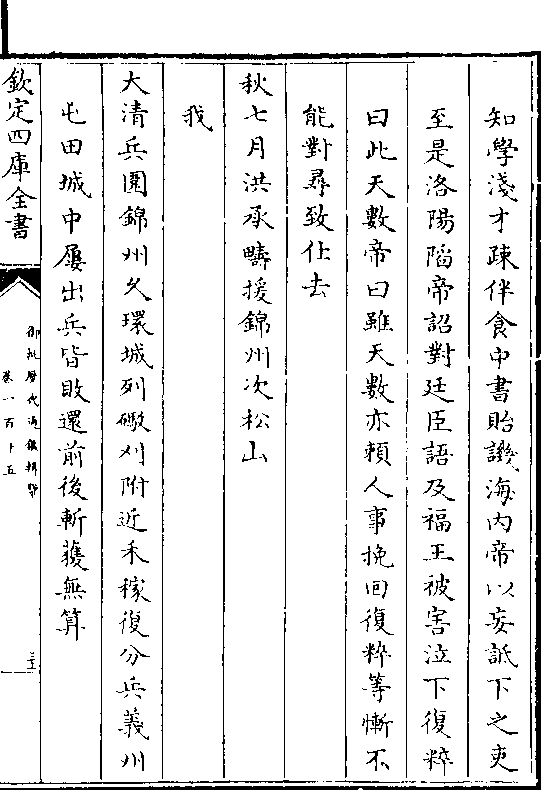 知學淺才疎伴食中書貽譏海内帝以妄詆下之吏
至是洛陽䧟帝詔對廷臣語及福王被害泣下復粹
曰此天數帝曰雖天數亦頼人事挽回復粹等慚不
能對尋致仕去
秋七月洪承疇援錦州次松山
我
大清兵圍錦州久環城列礮刈附近禾稼復分兵義州
屯田城中屢出兵皆敗還前後斬獲無算
欽定四庫全書
御批歷代通鑑輯覽
卷一百十五